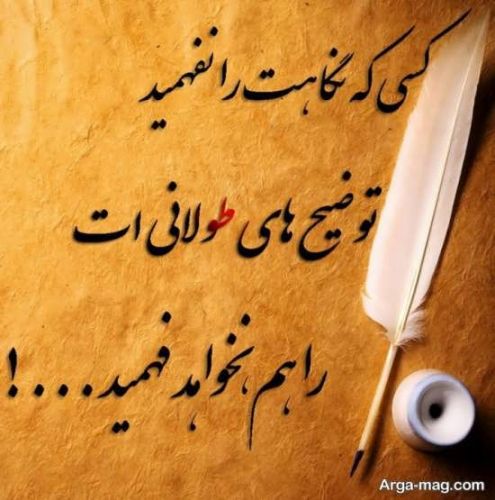 کسی که نگاهت را نفهمید
توضیح های طولانی ات
را هم نخواهد فهمید....!
Arga-mag.com